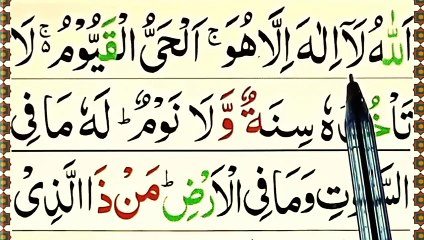 اَللّٰهُ لَاۤ اِلٰهَ اِلَّا هُوَ ۚ اَلْحَیُّ الْقَیُّوْمُ ۚ۬ لَا
تَاْخُذُهٗ سِنَةٌ وَّ لَا نَوْمٌ ؕ لَهٗ مَا فِی
السَّمٰوٰتِ وَ مَا فِی الْاَرْضِ ؕ مَنْ ذَا الَّذِیْ